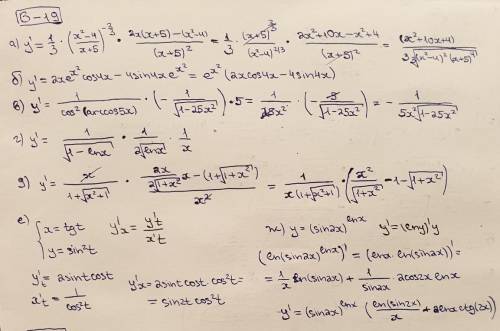 В-19
а) y' = 1/3 · ((x²-4)/(x+5))^(-2/3) · (2x(x+5)-(x²-4))/(x+5)² = 1/3 · (x+5)^(2/3)/(x²-4)^(2/3) · (2x²+10x-x²+4)/(x+5)² = (x²+10x+4)/(3∛((x²-4)²(x+5)⁴))
б) y' = 2xe^(x²)cos4x - 4sin4x e^(x²) = e^(x²)(2xcos4x - 4sin4x)
в) y' = 1/(cos²(arccos5x)) · (- 1/√(1-25x²)) · 5 = 1/(25x²) · (- 5/√(1-25x²)) = - 1/(5x²√(1-25x²))
г) y' = 1/√(1-lnx) · 1/(2√lnx) · 1/x
д) y' = x/(1+√(x²+1)) · ((2x/(2√(1+x²)))x - (1+√(1+x²)))/x² = 1/(x(1+√(x²+1))) · (x²/√(1+x²) - 1 - √(1+x²))
е) { x = tgt
y = sin²t
y'x = y't/x't
y't = 2sintcost
x't = 1/cos²t
y'x = 2sint cost · cos²t =
= sin2t cos²t
ж) y = (sin2x)^(lnx) y' = (lny)'y
(ln(sin2x)^(lnx))' = (lnx · ln(sin2x))' =
= 1/x ln(sin2x) + 1/sin2x · 2cos2x lnx
y' = (sin2x)^(lnx) (ln(sin2x)/x + 2lnx ctg(2x))